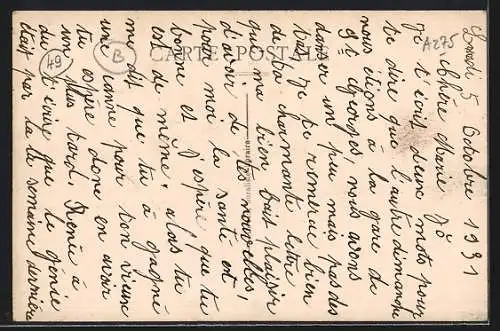 Lundi 5 Octobre 1931
Chère Marie Jo
Je t'écrit deux mots pour
te dire que l'autre dimanche
nous étions à la gare de
St Georges, nous avons
danser un peu mais pas des
tas, Je te remercie bien
de ta charmante lettre
qui m'a bien fait plaisir
d'avoir de tes nouvelles,
pour moi la santé est
bonne et J'espère que tu
est de même. alors tu
me dit que tu à gagné
une canne pour ton vieux
tu espère donc en avoir
un plus tard. Renée à
du t'écrire que le génie
était par là la semaine dernière
CARTE POSTALE
A275
B
49